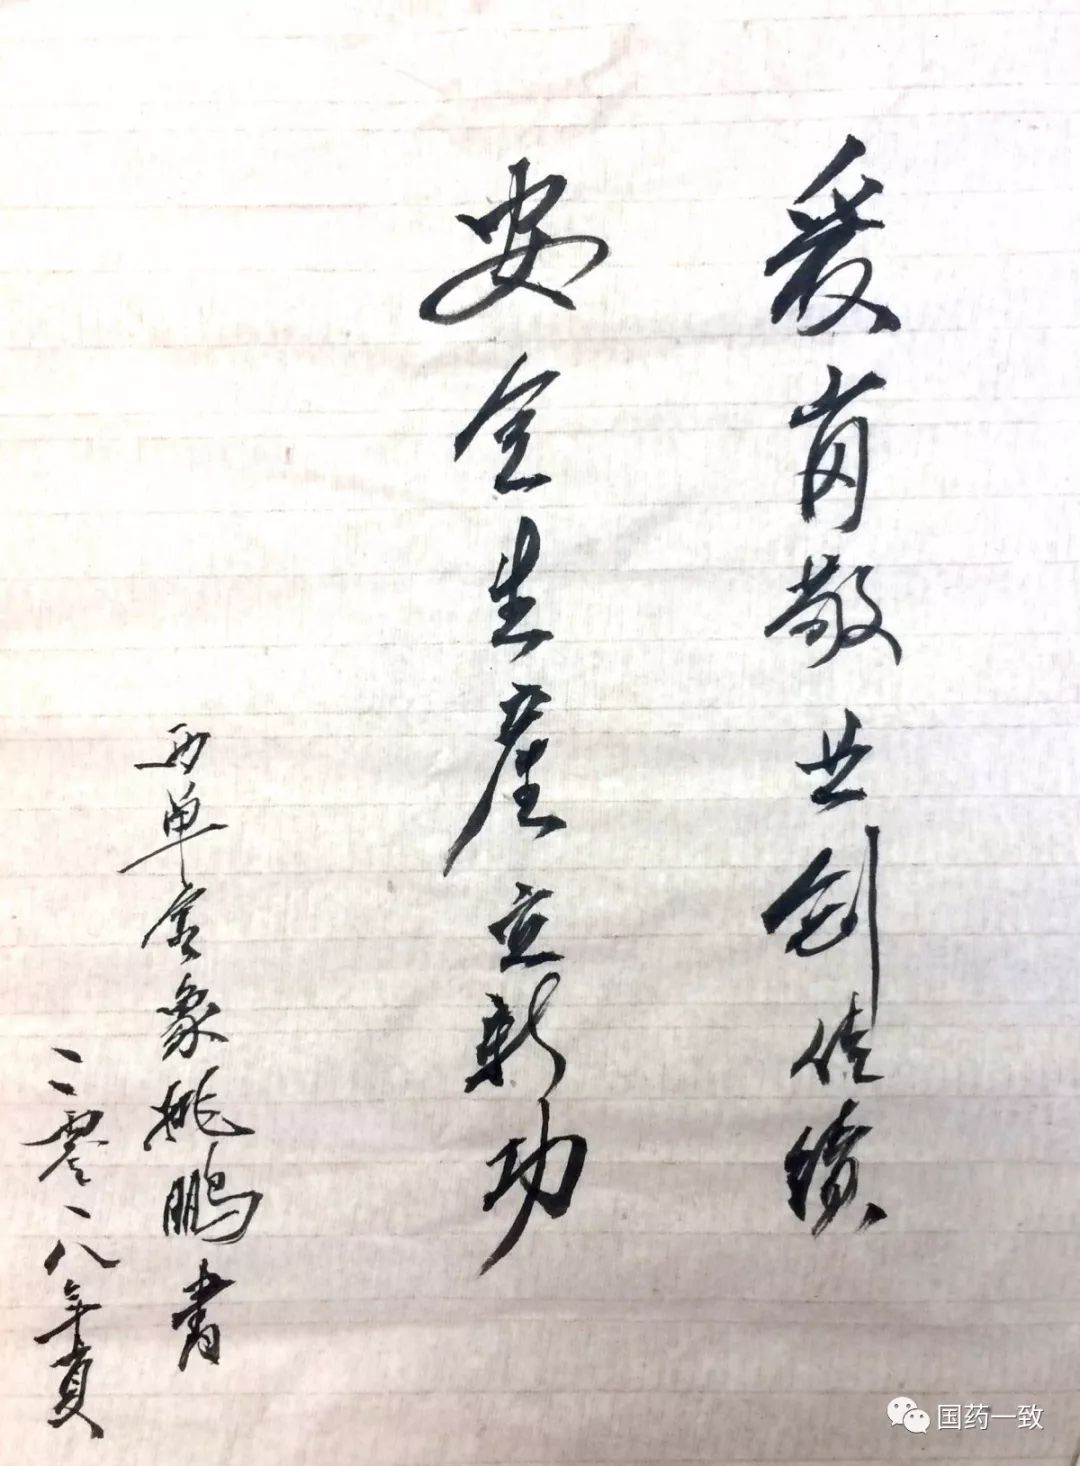 爱岗敬业创佳绩
安全生产立新功
西单金象姚鹏书
二零一八年夏
国药一致